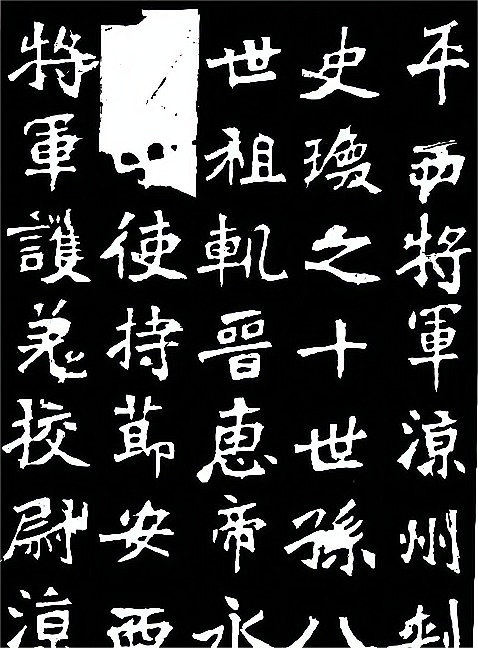 平西將軍涼州刺
史瓌之十世孫八
世祖軌晉惠帝永
使持節安西
將軍護羌挍尉涼